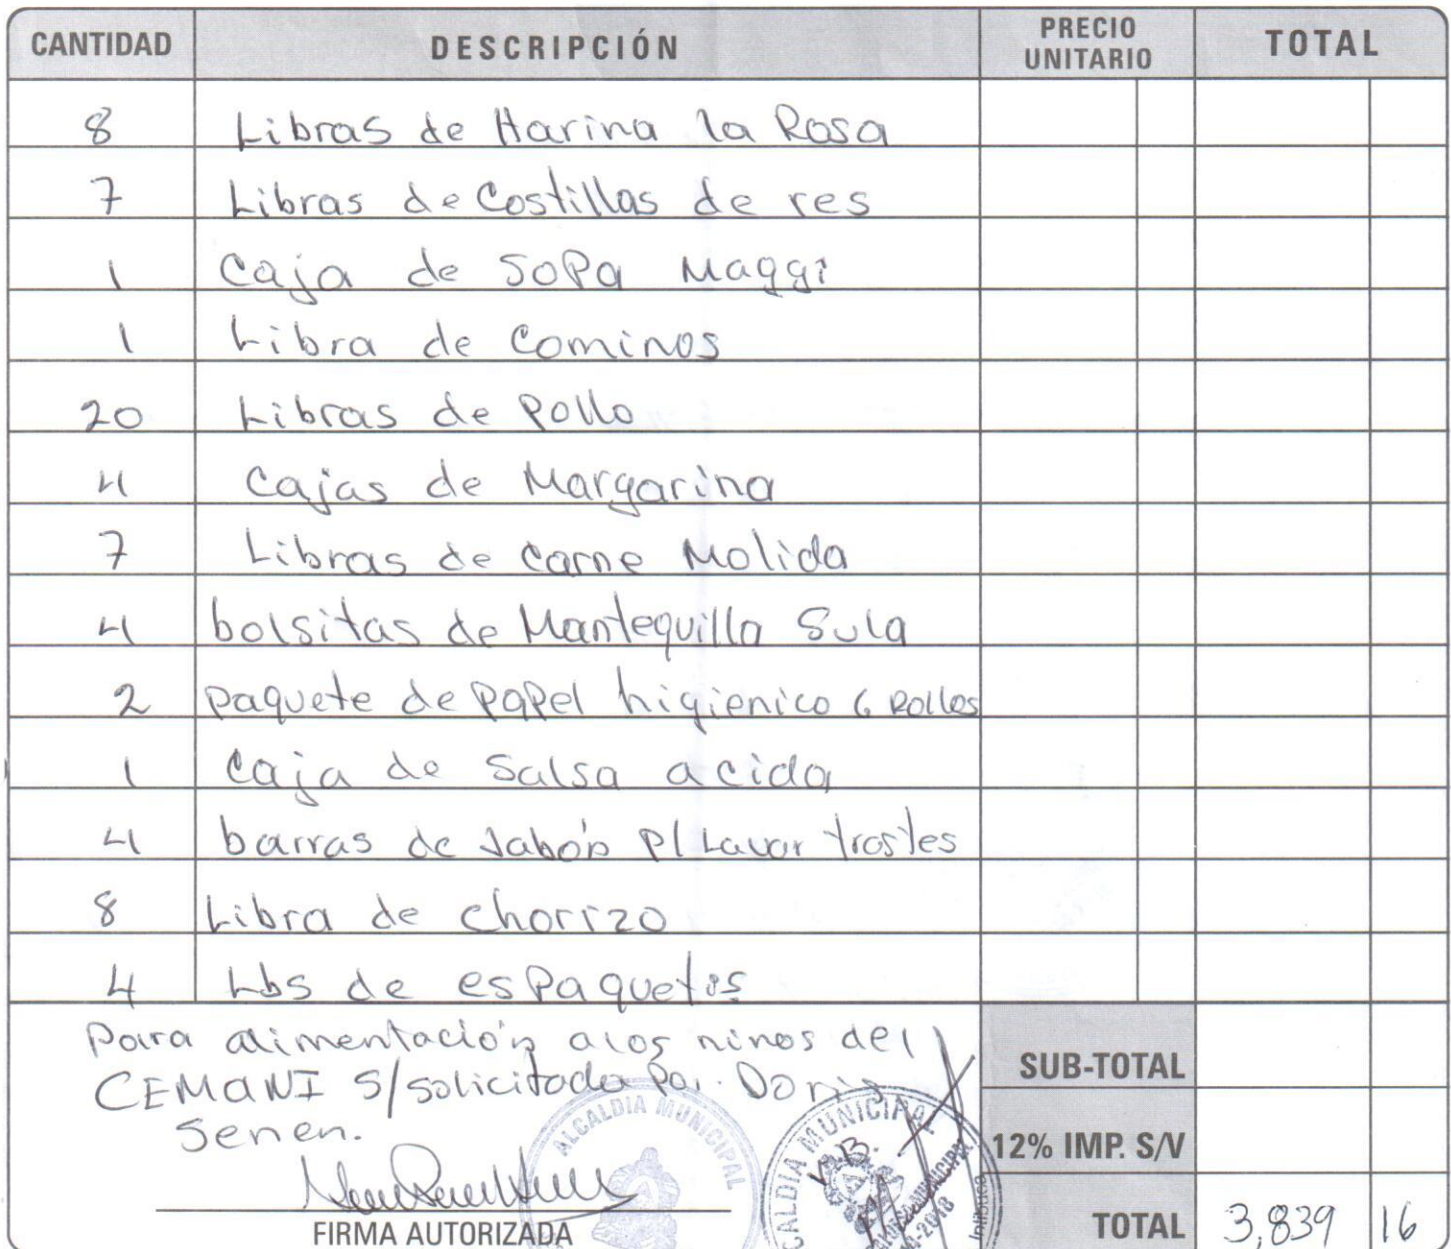 CANTIDAD DESCRIPCIÓN PRECIO UNITARIO TOTAL
8 Libras de Harina la Rosa
7 Libras de Costillas de res
1 Caja de Sopa Maggi
1 Libra de Cominos
20 Libras de Pollo
4 Cajas de Margarina
7 Libras de Carne Molida
4 bolsitas de Mantequilla Sula
2 paquete de papel higienico 6 Rollos
1 Caja de Salsa acida
4 barras de Jabón p/ Lavar trastes
8 Libra de chorizo
4 Lbs de espaguetis
Para alimentación a los ninos del
CEMANI S/solicitado por. Doris
Senen.
ALCALDIA MUNICIPAL
ALDIA MUNICIPA
V.B.
Intibuca
FIRMA AUTORIZADA
SUB-TOTAL
12% IMP. S/V
TOTAL 3,839 16